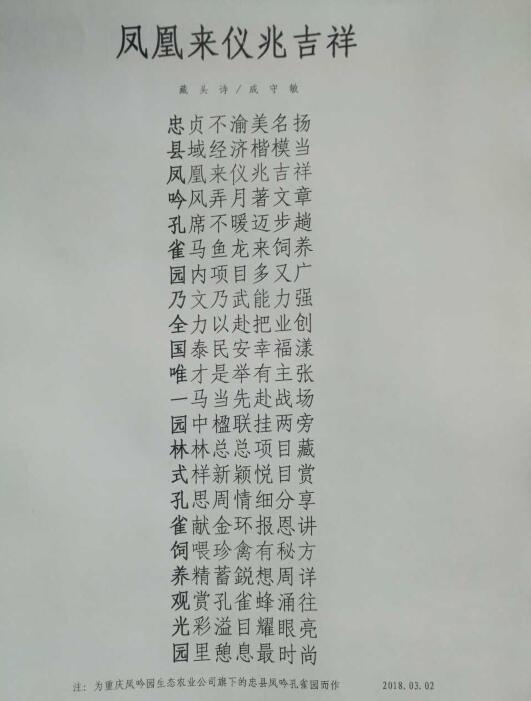 凤凰来仪兆吉祥
藏头诗/成守敏
忠贞不渝美名扬
县域经济楷模当
凤凰来仪兆吉祥
吟风弄月著文章
孔席不暖迈步趟
雀马鱼龙来饲养
园内项目多又广
乃文乃武能力强
全力以赴把业创
国泰民安幸福漾
唯才是举有主张
一马当先赴战场
园中楹联挂两旁
林林总总项目藏
式样新颖悦目赏
孔思周情细分享
雀献金环报恩讲
饲喂珍禽有秘方
养精蓄鋭想周详
观赏孔雀蜂涌往
光彩溢目耀眼亮
园里憩息最时尚
注：为重庆凤吟园生态农业公司旗下的忠县凤吟孔雀园而作 2018.03.02